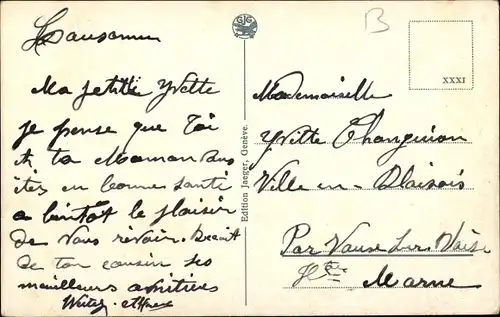 Lausanne
Ma petite Yvette
je pense que Toi
et ta Maman vous
êtes en bonne santé
a bientôt le plaisir
de vous revoir. Reçoit
de ton cousin ses
meilleurs amitiées
Edition Jaeger, Genève.
B
XXXI
Mademoiselle
Yvette Changuion
Ville en Blaisois
Par Vause Sur Blaise
Hte Marne